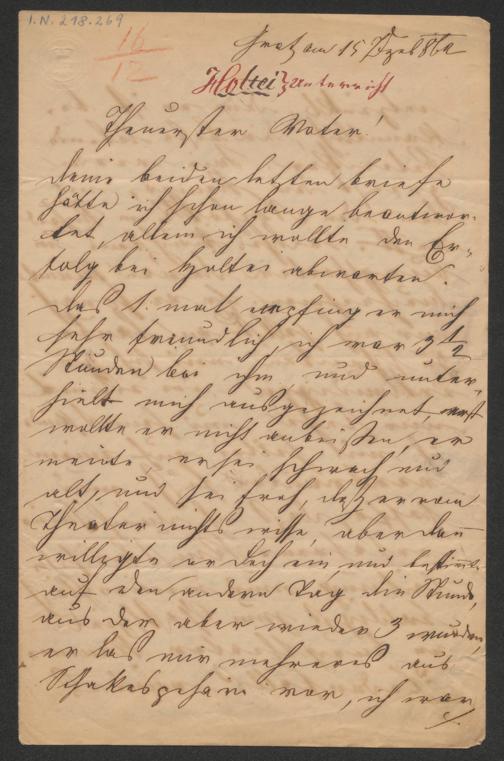 I.N. 218.269
16
12
Gratz am 15 Dzbr 86
Holtei Unterricht
Theuerster Vater!
Deine beiden letzten Briefe
hätte ich schon lange beantwor-
tet, allein ich wollte den Er-
folg bei Holtei abwarten.
Das 1. mal empfing er mich
sehr freundlich, ich war 3 1/2
Stunden bei ihm und unter-
hielt mich ausgezeichnet, erst
wollte er nicht anbeißen, er
meinte, er sei schwach und
alt, und sei froh, daß er vom
Theater nichts wisse, aber dan̄
willigte er doch ein, und bestimmte
auf den andern Tag die Stunde,
aus der aber wieder 3 wurden,
er las mir mehreres aus
Schakespeare vor, ich war